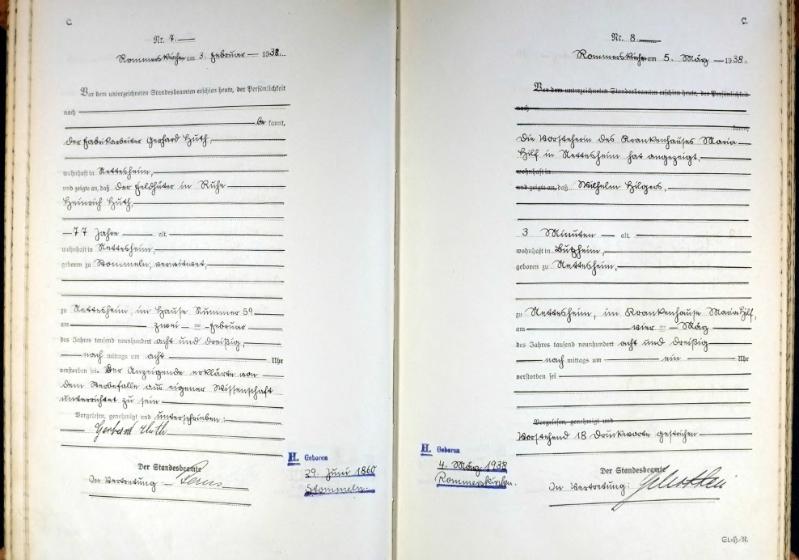 C.
Nr. 7
Rommerskirchen am 3. Februar 1938.
Vor dem unterzeichneten Standesbeamten erschien heute, der Persönlichkeit
nach
be kannt,
der Fabrikarbeiter Gerhard Huth,
wohnhaft in Nettesheim,
und zeigte an, daß der Feldhüter in Ruhe
Heinrich Huth,
77 Jahre alt
wohnhaft in Nettesheim,
geboren zu Stommeln, verwitwet,
zu Nettesheim, im Hause Nummer 59
am zwei = Februar
des Jahres tausend neunhundert acht und dreißig,
nach mittags um acht Uhr
verstorben sei. Der Anzeigende erklärte von
dem Sterbefalle aus eigener Wissenschaft
unterrichtet zu sein
Vorgelesen, genehmigt und unterschrieben:
Gerhard Huth
Der Standesbeamte
In Vertretung
H. Geboren
29. Juni 1860
Stommeln
C.
Nr. 8
Rommerskirchen am 5. März 1938.
Vor dem unterzeichneten Standesbeamten erschien heute, der Persönlichkeit
nach
kannt,
Die Vorsteherin des Krankenhauses Maria
Hilf in Nettesheim hat angezeigt,
wohnhaft in
und zeigte an, daß Wilhelm Hilgers,
3 Minuten alt
wohnhaft in Butzheim,
geboren zu Nettesheim,
zu Nettesheim, im Krankenhause Maria Hilf,
am vier = März
des Jahres tausend neunhundert acht und dreißig
nach mittags um ein Uhr
verstorben sei
Vorgelesen, genehmigt und
Vorstehend 18 Druckworte gestrichen
Der Standesbeamte
In Vertretung:
H. Geboren
4. März 1938
Rommerskirchen.